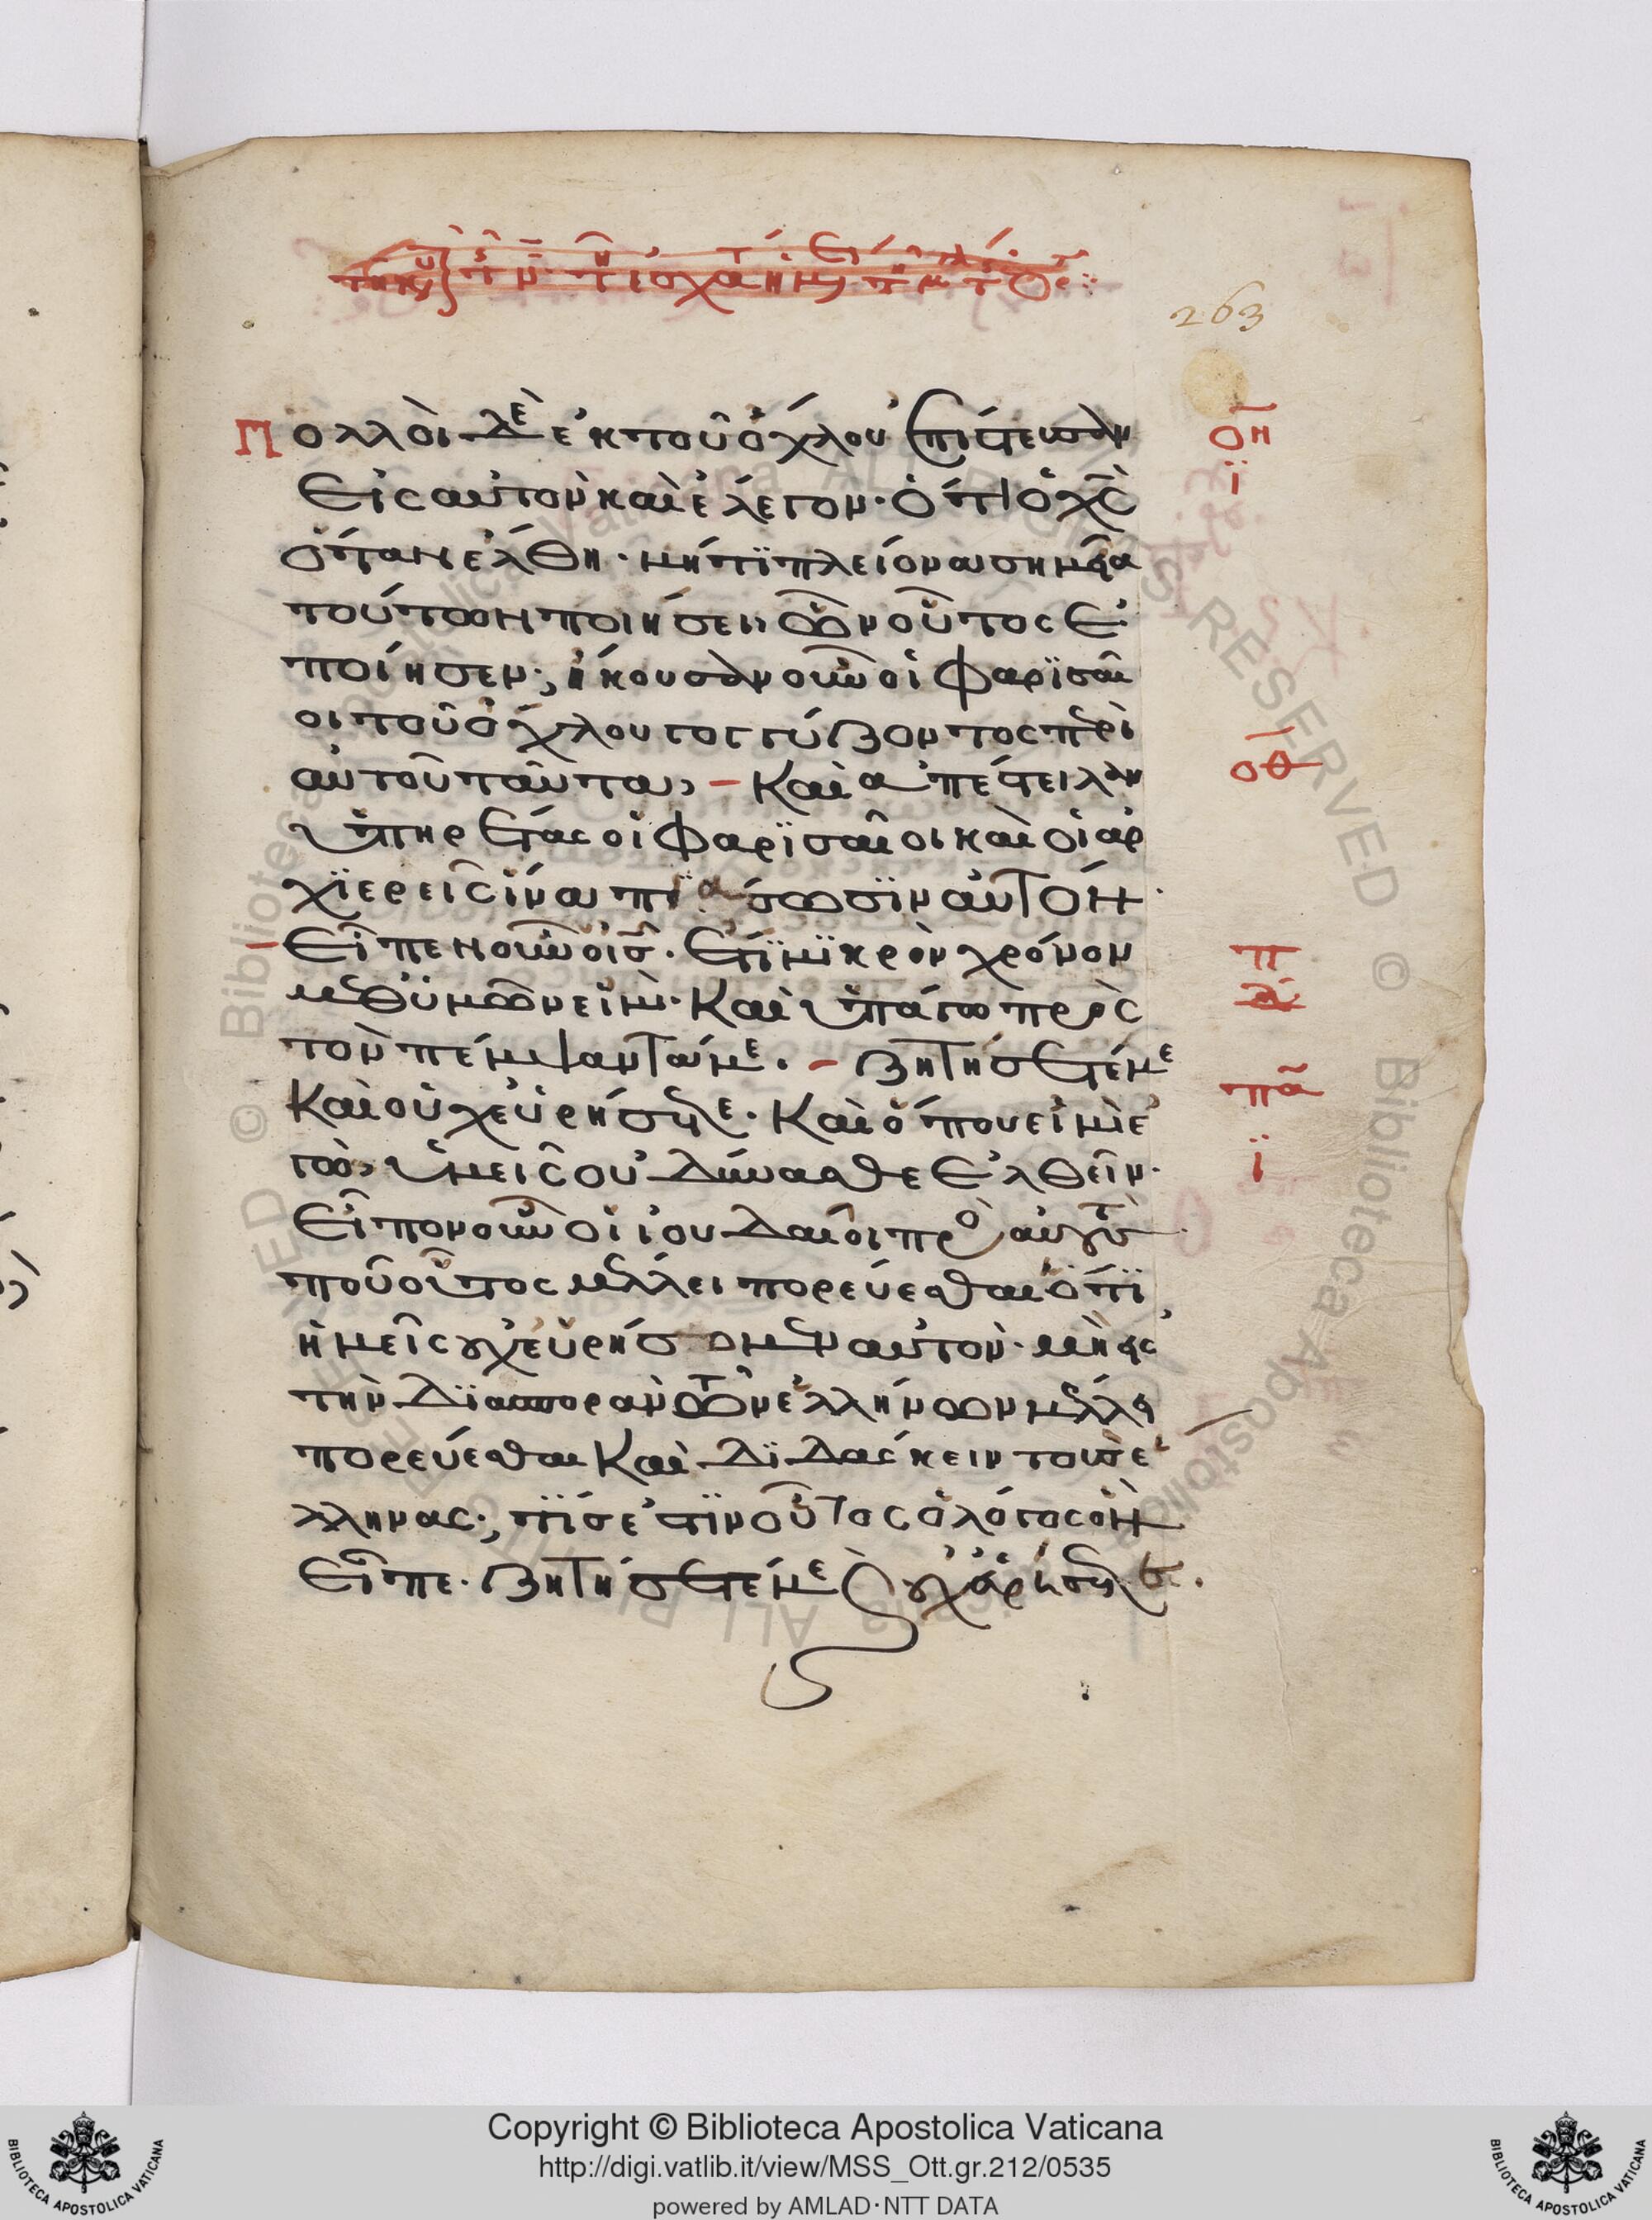 263
Πολλοὶ δὲ ἐκ τοῦ ὄχλου ἐπίστευσαν
οη
εἰς αὐτὸν καὶ ἔλεγον· ὅτι ὁ χς
ϊ
ὅταν ἔλθη· μήτϊ πλείονα σημεῖα
τούτων ποιήσει ὧν οὗτος ἐ
ποίησεν; ἤκουσαν οὖν οἱ Φαρϊσαῖ
οι τοῦ ὄχλου γογγύζοντος περὶ
οθ
αὐτοῦ ταῦτα, – Καὶ ἀπέστειλαν
ὑπηρέτας οἱ Φαρϊσαῖοι καὶ οἱ ἀρ
χϊερεῖς ἵνα πϊάσωσϊν αὐτόν·
– Εἶπεν οὖν ὁ ις· ἔτϊ μϊκρὸν χρόνον
π
μεθ' ὑμῶν εἰμὶ· Καὶ ὑπάγω πρὸς
τὸν πέμψαντά με. – Ζητήσετέ με
πα
Καὶ οὐχ εὑρήσετε· Καὶ ὅπου εἰμὶ ἐ
γὼ, ὑμεῖς οὐ δύνασθε ἐλθεῖν·
ϊ
Εἶπον οὖν οἱ ἰουδαῖοι πρὸ αὑτούς
ποῦ οὗτος μέλλει πορεύεσθαι ὅτϊ
ἡμεῖς οὐχ εὑρήσομεν αὐτόν· μὴ εἰς
τὴν δϊασποραν τῶν ἑλλήνων μέλλει
πορεύεσθαι Καὶ δϊδάσκειν τοὺς ἕ
λληνας; τϊς ἐστϊν οὗτος ὁ λόγος ὃν
εἶπε· Ζητήσετέ με (καὶ) οὐχ εὑρήσετέ.
Copyright © Biblioteca Apostolica Vaticana
http://digi.vatlib.it/view/MSS_Ott.gr.212/0535
powered by AMLAD·NTT DATA
BIBLIOTECA APOSTOLICA VATICANA
BIBLIOTECA APOSTOLICA VATICANA